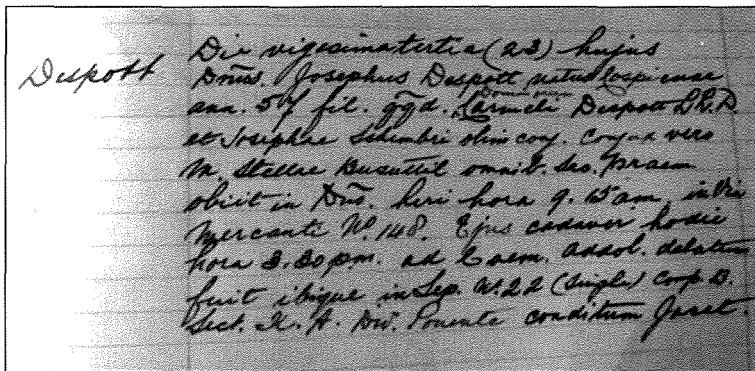 Die vigesima tertia (23) hujus
Despott Dnus. Josephus Despott natus Cospicuae
Dominorum
ann. 57 fil. qqd. Carmeli Despott L.R.D.
et Josephae Schembri olim conj. Conjux vero
M. Stellae Busuttil omnib. Sec. Praem
obiit in Dno. heri hora 9.15 am in Via
Mercanti No. 148. Ejus cadaver hodie
hora 3.30 pm. ad Caem. Addol. delatum
fuit ibique in Sep. No. 22 (Single) Comp. B.
Sect. A. Div. Ponente conditum Jacet.